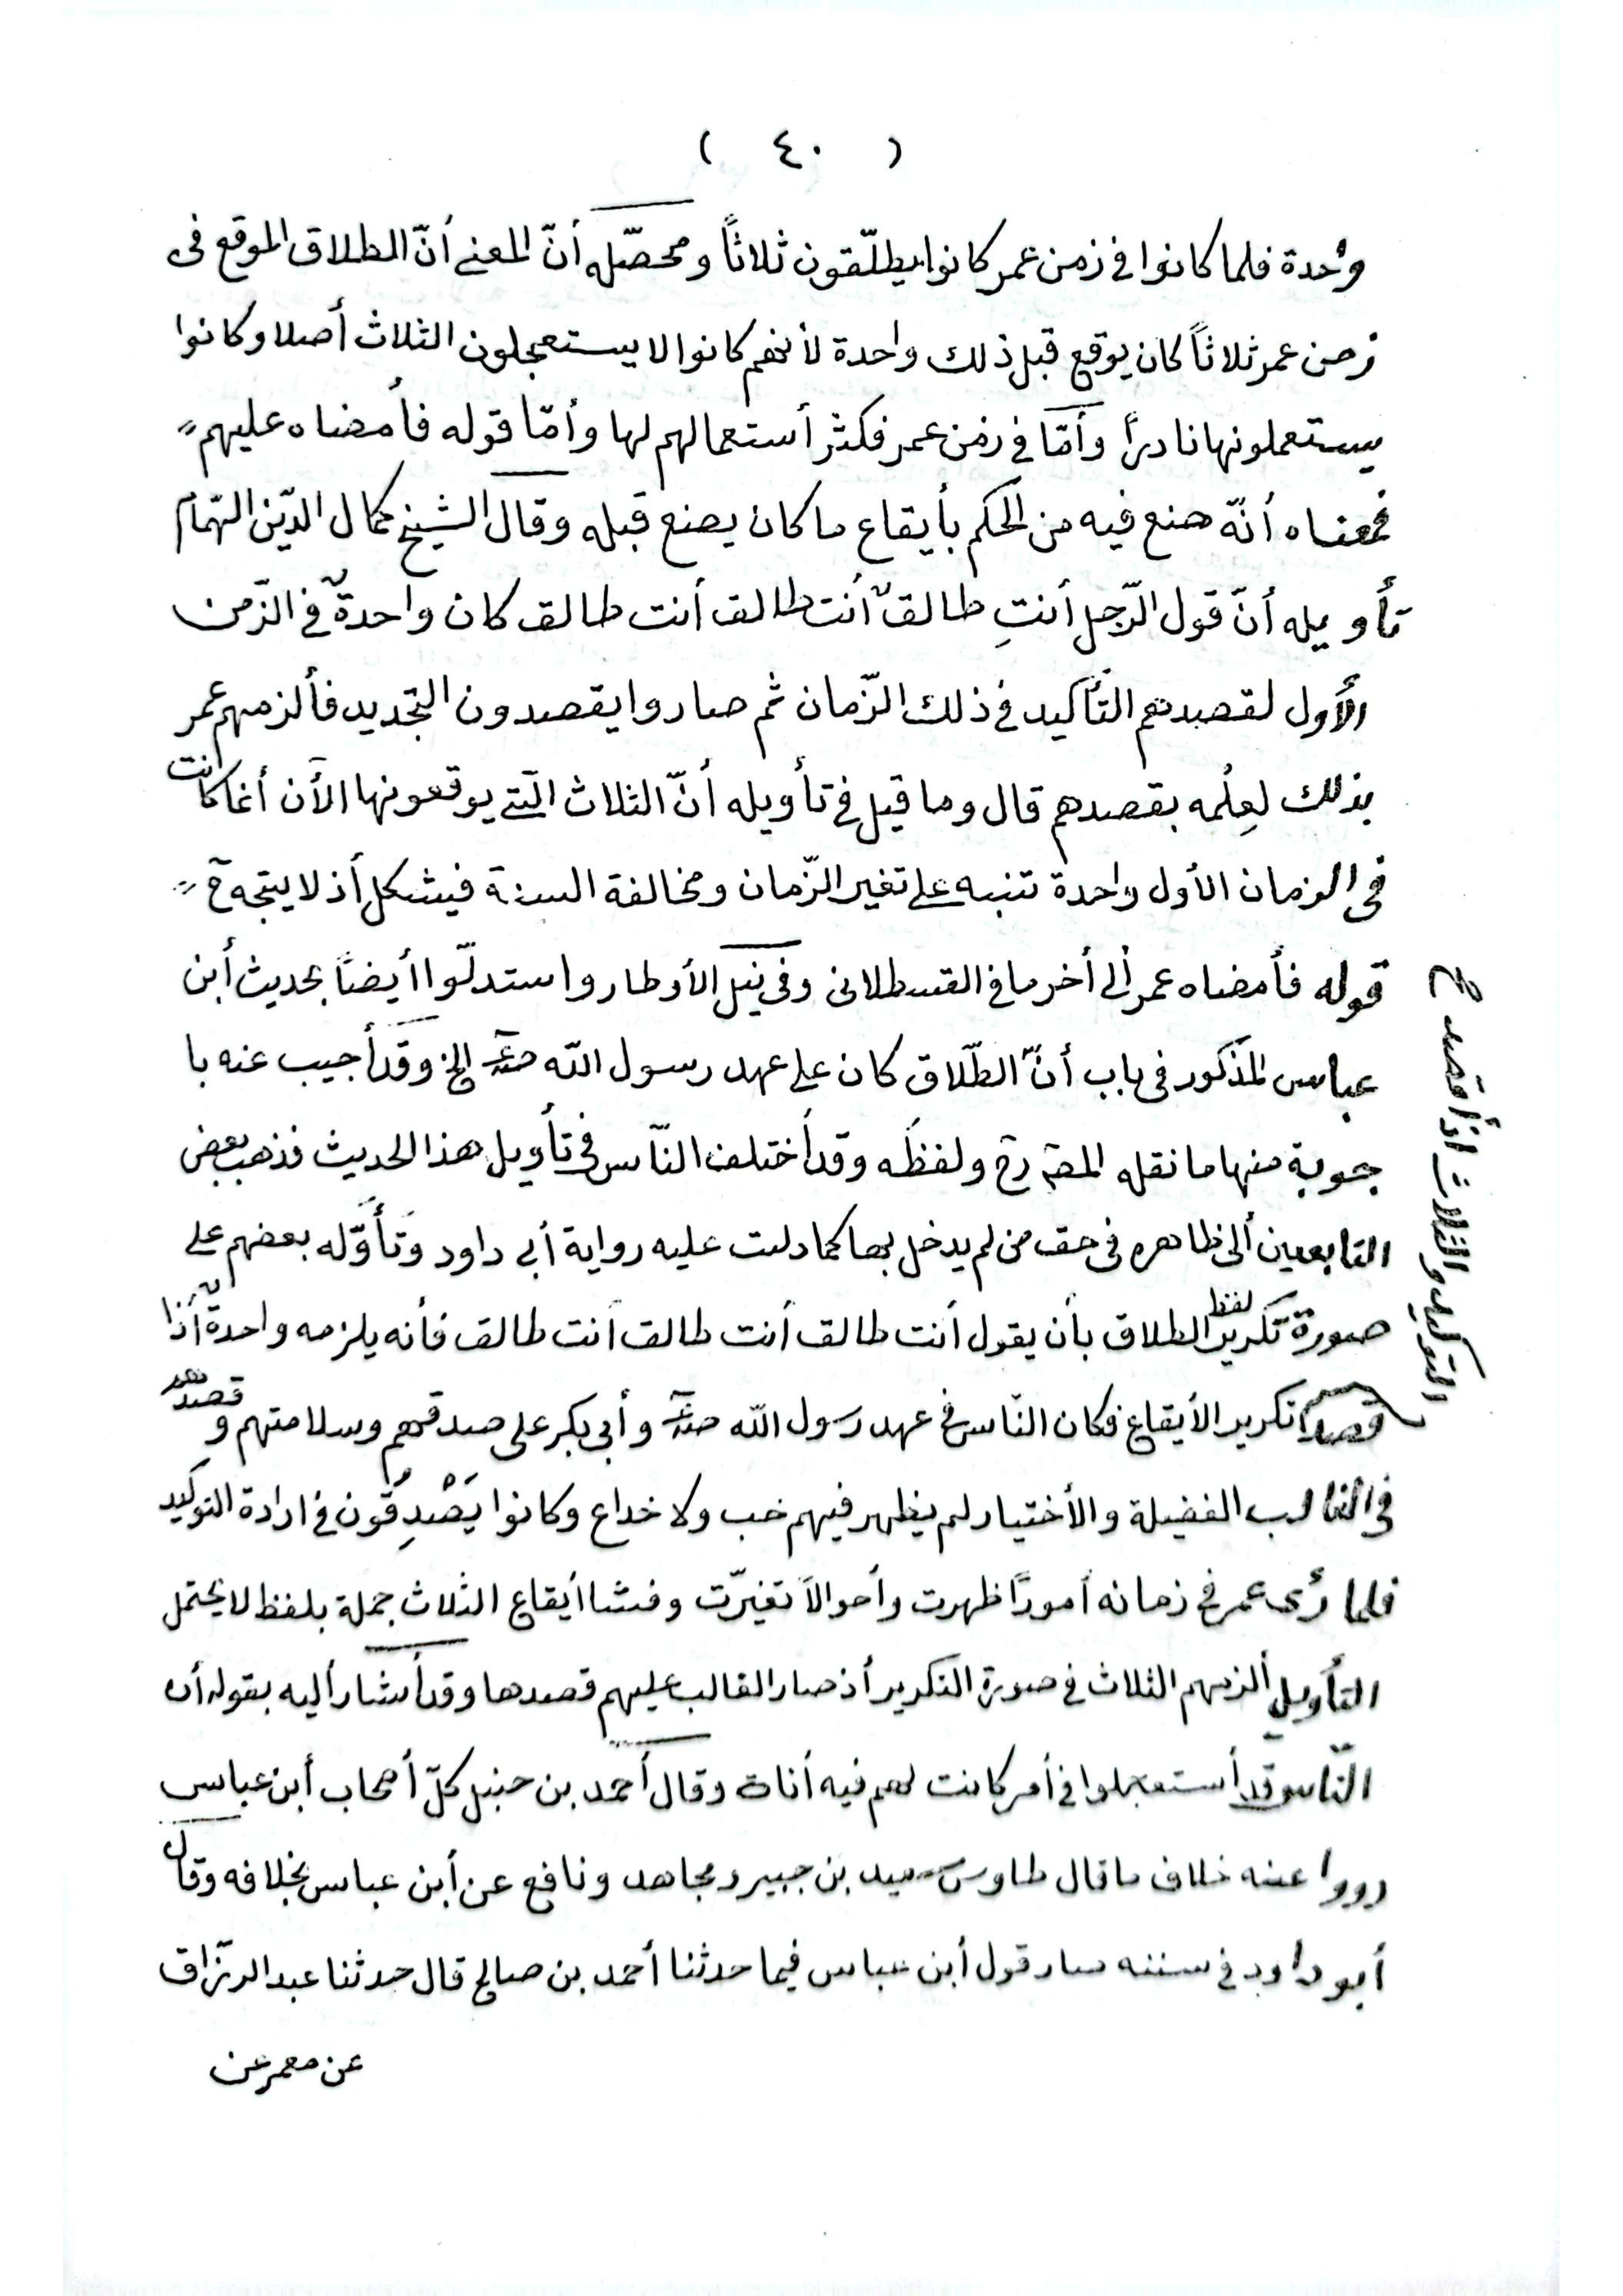 ( ٤٠ )
وٰحدة فلما كانوا فى زمن عمر كانوا يطلّقون ثلاثاً ومحصّله أنّ المعنى أنّ الطلاق الموقع فى
زمن عمر ثلاثاً كان يوقع قبل ذلك واحدة لأنهم كانوا لا يستعجلون الثلاث أصلا وكانوا
يستعملونها نادراً وأمّا فى زمن عمر فكثر أستعمالهم لها وأمّا قوله فأمضاه عليهم
فمعناه أنّه صنع فيه من الحكم بأيقاع ما كان يصنع قبله وقال الشيخ كمال الدّين الهمام
تأويله أنّ قول الرّجل أنتِ طالقٌ أنت طالق أنت طالق كان واحدةً فى الزّمن
الأول لقصدهم التأكيد فى ذلك الزّمان ثم صاروا يقصدون التجديد فألزمهم عمر
بذلك لعِلْمه بقصدهم قال وما قيل فى تأويله أنّ الثلاث الّتى يوقعونها الأن أنما كانت
فى الزمان الأول واحدة تنبه على تغير الزّمان ومخالفة السنة فيشكل أذ لا يتجه ح
قوله فأمضاه عمر ألى أخر ما فى القسطلانى وفى نيل الأوطار واستدلّوا أيضاً بحديث أبن
عباس المذكور فى باب أنّ الطّلاق كان على عهد رسول الله صلعم الخ وقد أجيب عنه با
جوبة منها ما نقله المصـ رح ولفظه وقد أختلف النّاس فى تأويل هذا الحديث فذهب بعض
التابعين ألى ظاهره فى حق من لم يدخل بها كما دلت عليه رواية أبى داود وتأوّله بعضهم على
صورة تكرير لفظ الطلاق بأن يقول أنت طالق أنت طالق أنت طالق فأنه يلزمه واحدة أذا
قصد تكرير الأيقاع فكان النّاس فى عهد رسول الله صلعم وأبى بكر على صدقهم وسلامتهم وقصدهم
فى الغالب الفضيلة والأختيار لم يظهر فيهم خب ولا خداع وكانوا يَصْدِقُون فى ارادة التوكيد
فلما رأى عمر فى زمانه أموراً ظهرت وأحوالاً تغيّرت وفشا أيقاع الثلاث جملة بلفظ لا يحتمل
التأويل ألزمهم الثلاث فى صورة التكرير أذ صار الغالب عليهم قصدها وقد أشار أليه بقوله أن
النّاس قد أستعجلوا فى أمر كانت لهم فيه أناة وقال أحمد بن حنبل كلّ أصحاب أبن عباس
رووا عنه خلاف ما قال طاوس سعيد بن جبير ومجاهد ونافع عن أبن عباس بخلافه وقال
أبو داود فى سننه صار قول أبن عباس فيما حدثنا أحمد بن صالح قال حدثنا عبد الرّزاق
عن معمر عن
التوكيد والثلاث اذا قصد